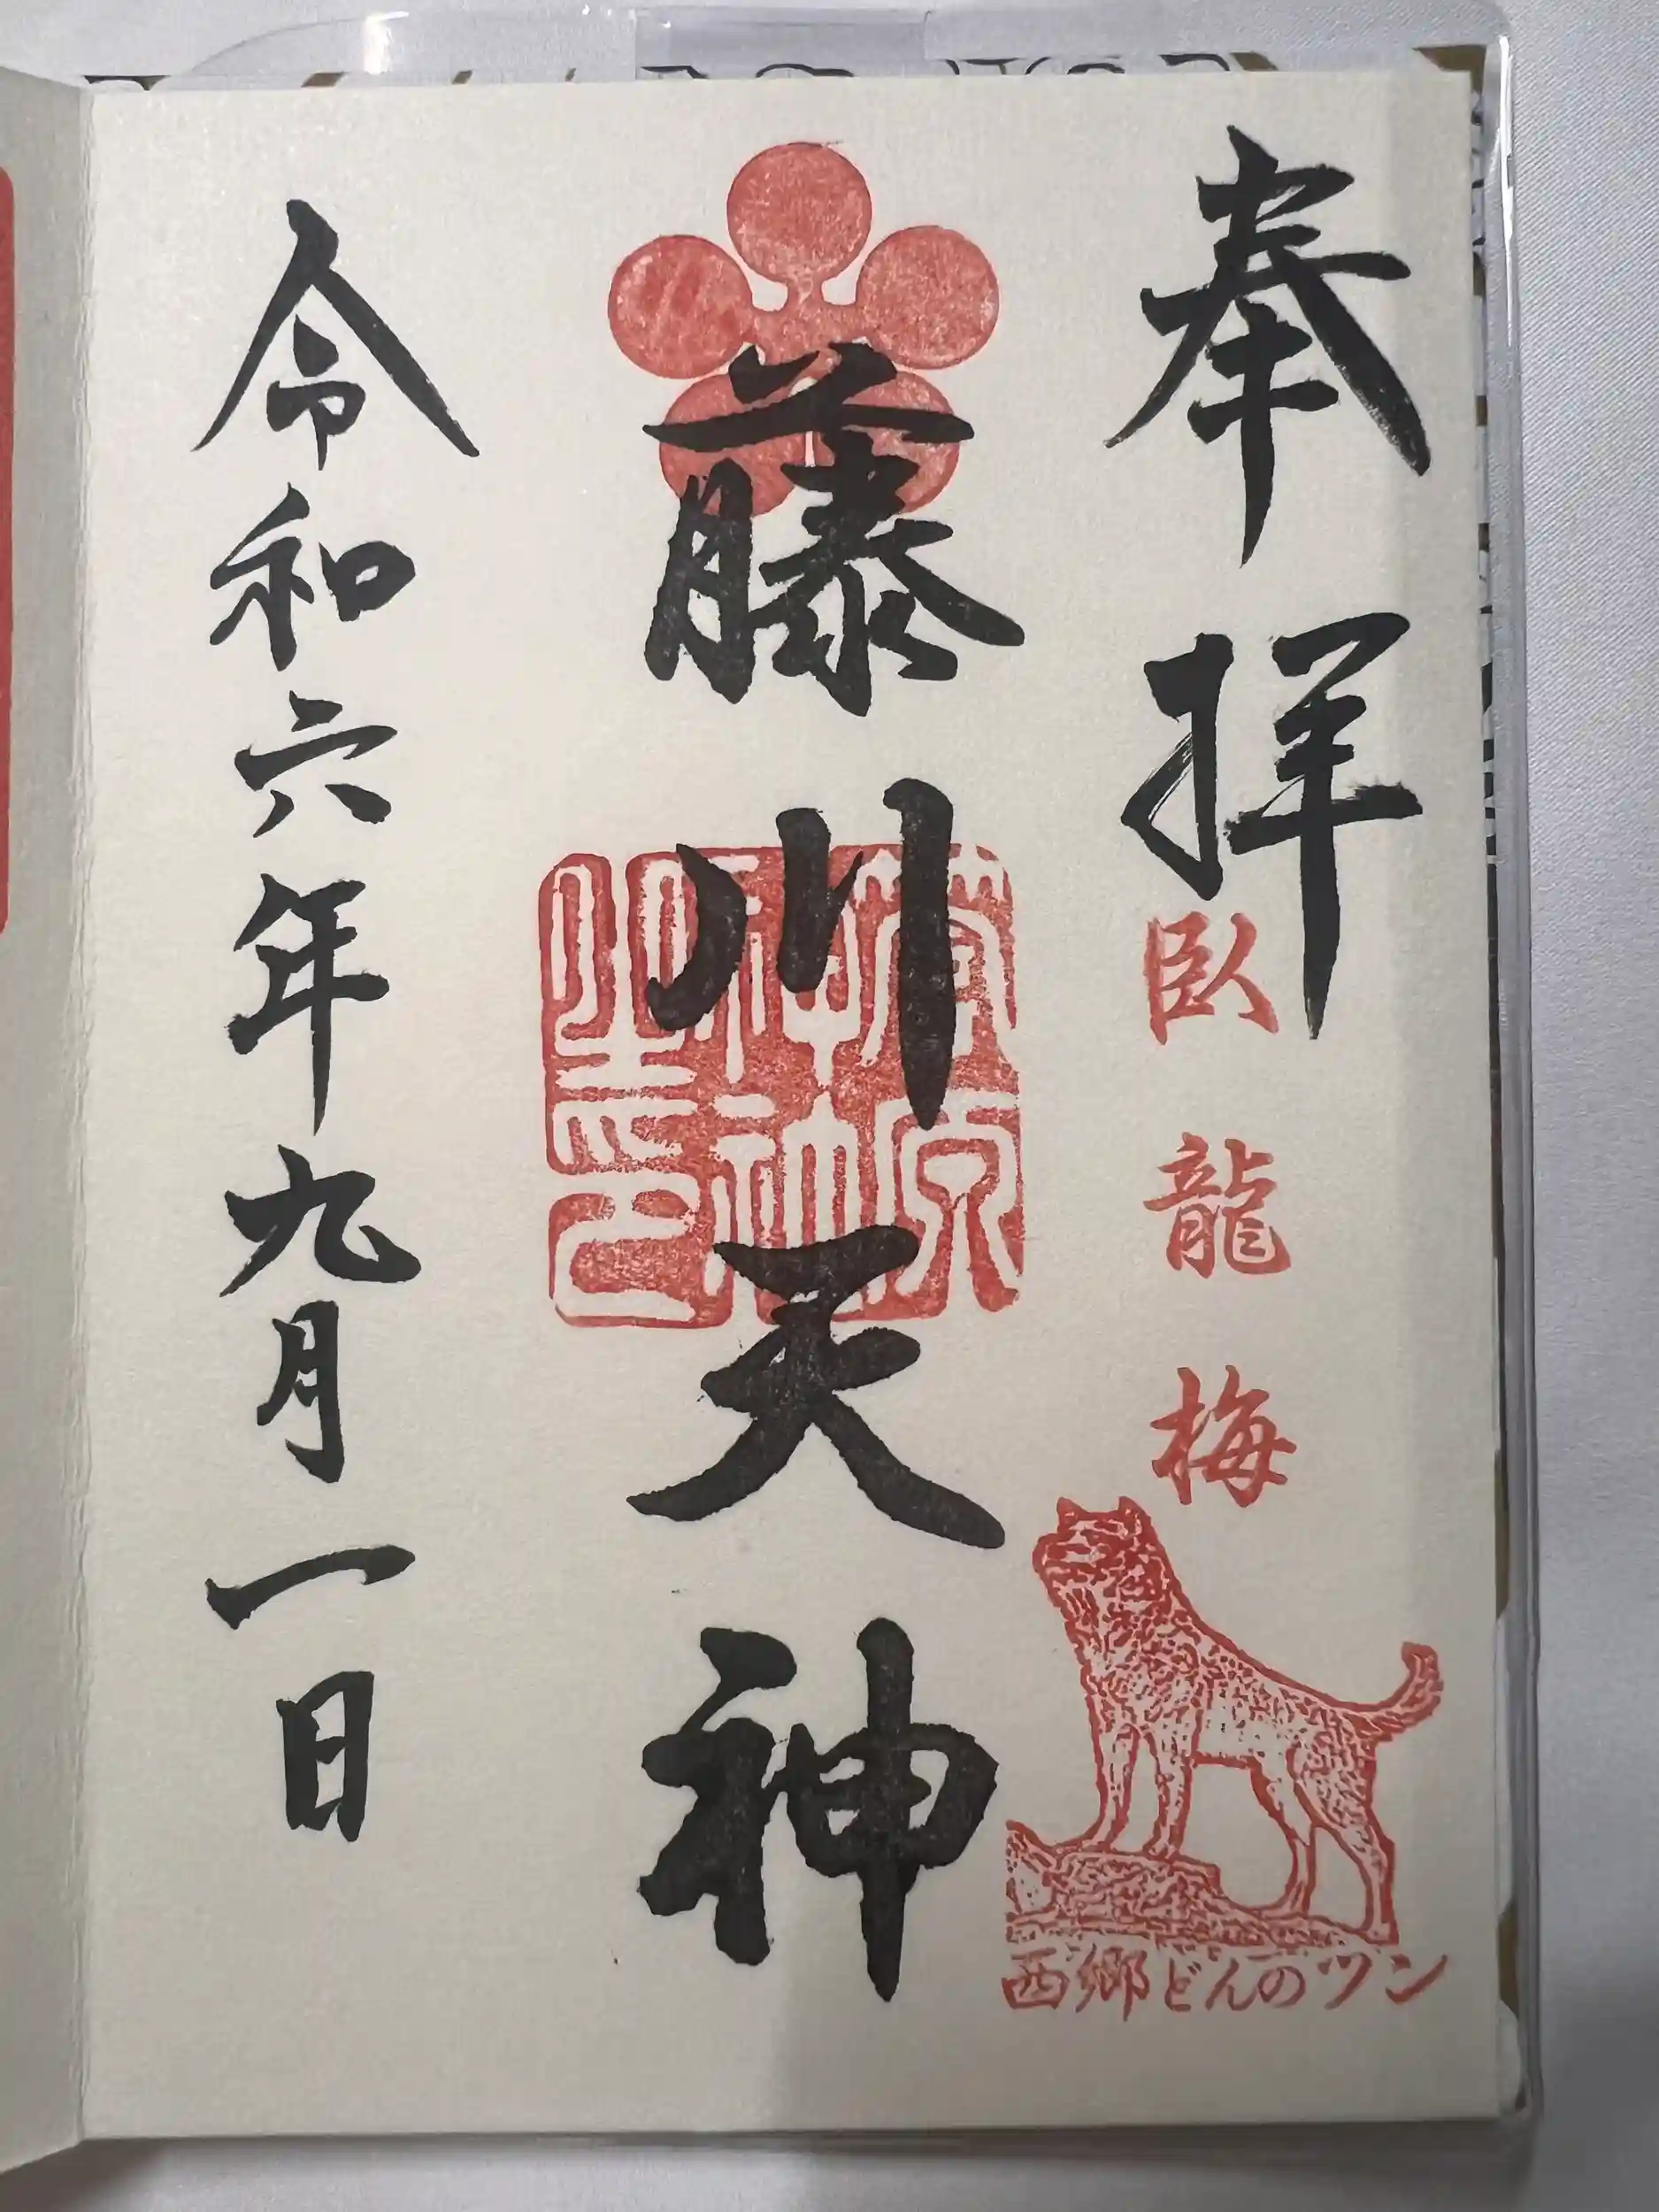 奉拝
臥龍梅
西郷どんのツン
藤川天神
菅原
神社
令和六年九月一日